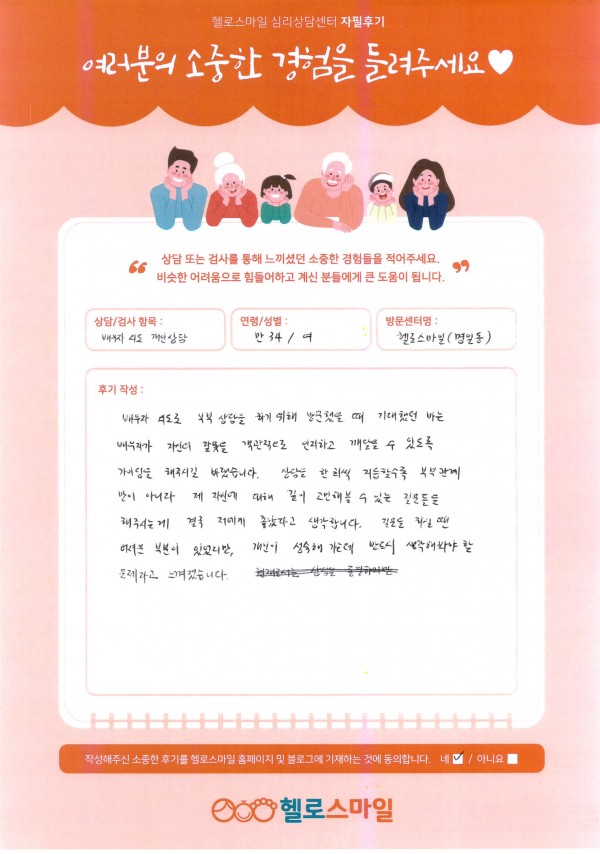 헬로스마일 심리상담센터 자필후기
여러분의 소중한 경험을 들려주세요♥
상담 또는 검사를 통해 느끼셨던 소중한 경험들을 적어주세요.
비슷한 어려움으로 힘들어하고 계신 분들에게 큰 도움이 됩니다.
상담/검사 항목 :
배우자 외도 개인상담
연령/성별 :
만 34 / 여
방문센터명 :
헬로스마일(명일동)
후기 작성 :
배우자 외도로 부부 상담을 하기 위해 방문했을 때 기대했던 바는
배우자가 자신의 잘못을 객관적으로 인지하고 깨달을 수 있도록
가이딩을 해주시길 바랬습니다. 상담을 한 회씩 거듭할수록 부부 관계
만이 아니라 제 자신에 대해 깊이 고민해볼 수 있는 질문들을
해주시는게 결국 저에게 좋았다고 생각합니다. 질문을 하실 땐
어려운 부분이 있었지만, 개인이 성숙해 가는데 반드시 생각해봐야 할
문제라고 느껴졌습니다.
작성해주신 소중한 후기를 헬로스마일 홈페이지 및 블로그에 기재하는 것에 동의합니다. 네 / 아니요
헬로스마일